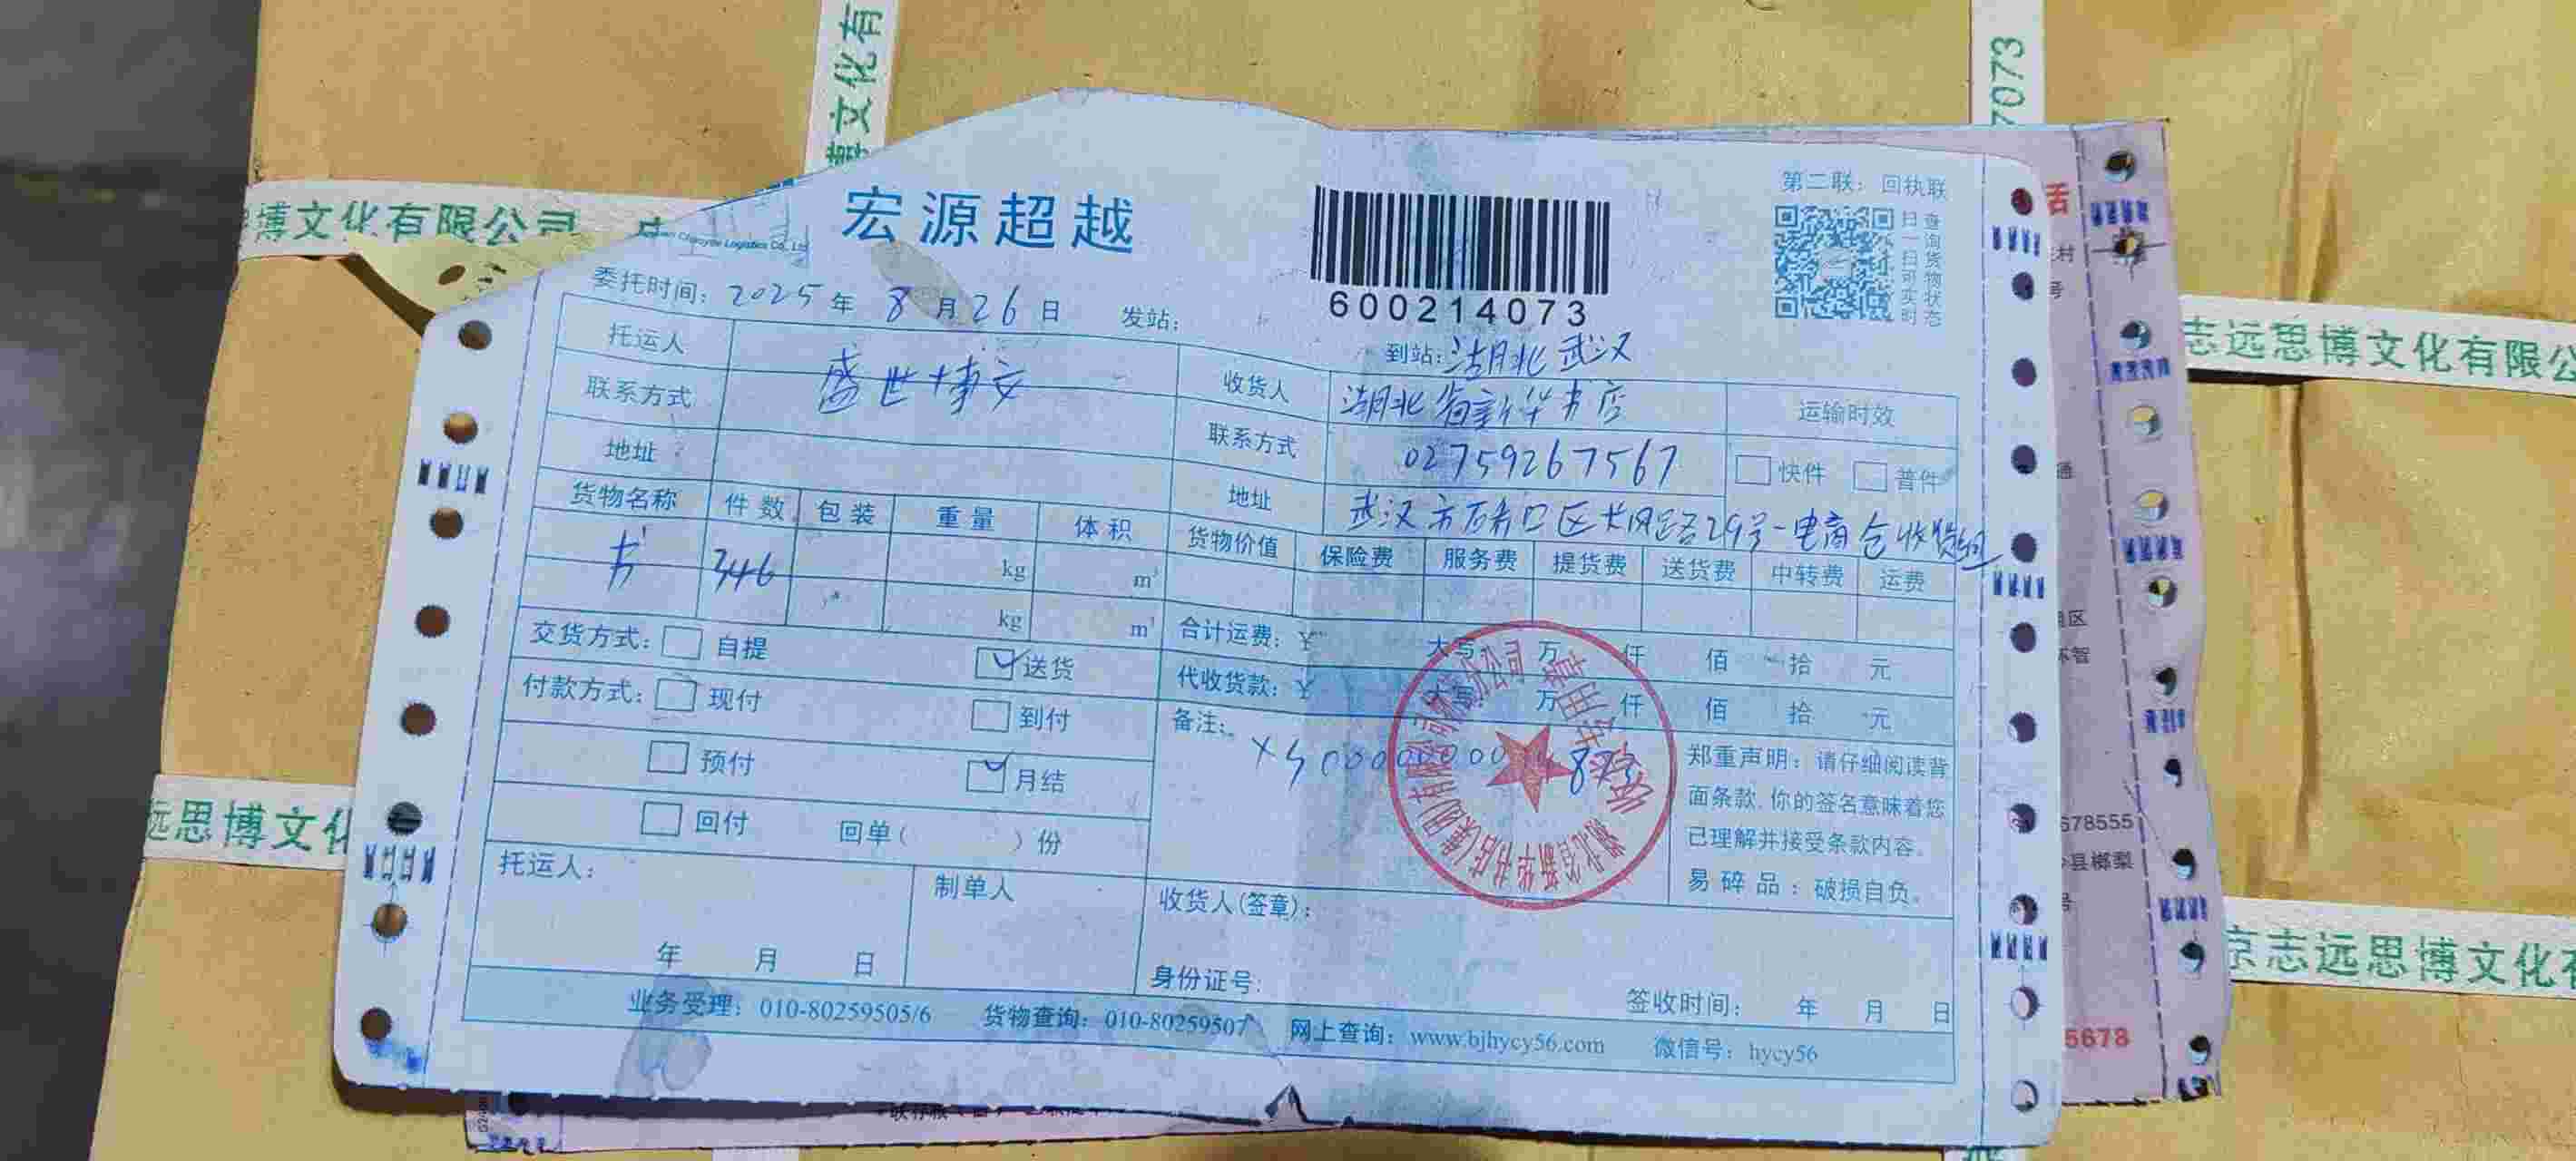 博文化有
7073
博文化有限公司
第二联：回执联
宏源超越
Chaoyue Logistics Co., Ltd
扫一扫可实时
查询货物状态
600214073
委托时间：2025年8月26日 发站：
到站：湖北武汉
托运人 盛世博安 收货人 湖北省新华书店 运输时效
联系方式 联系方式 02759267567 快件 普件
地址 地址 武汉市石希口区长风路29号-电商仓收货组
货物名称 件数 包装 重量 体积 货物价值 保险费 服务费 提货费 送货费 中转费 运费
书 346 kg m³
kg m³
交货方式： 自提 送货 合计运费：¥ 大写 万 仟 佰 拾 元
付款方式： 现付 到付 代收货款：¥ 大写 万 仟 佰 拾 元
预付 月结 备注：
回付 回单（ ）份
湖北省新华书店(集团)有限公司
郑重声明：请仔细阅读背
面条款，你的签名意味着您
已理解并接受条款内容。
易碎品：破损自负。
托运人： 制单人 收货人(签章)：
年 月 日 身份证号： 签收时间： 年 月 日
业务受理：010-80259505/6 货物查询：010-80259507 网上查询：www.bjhycy56.com 微信号：hycy56
志远思博文化有限公
远思博文化
京志远思博文化有
村
号
通
区
678555
县榔梨
号
5678